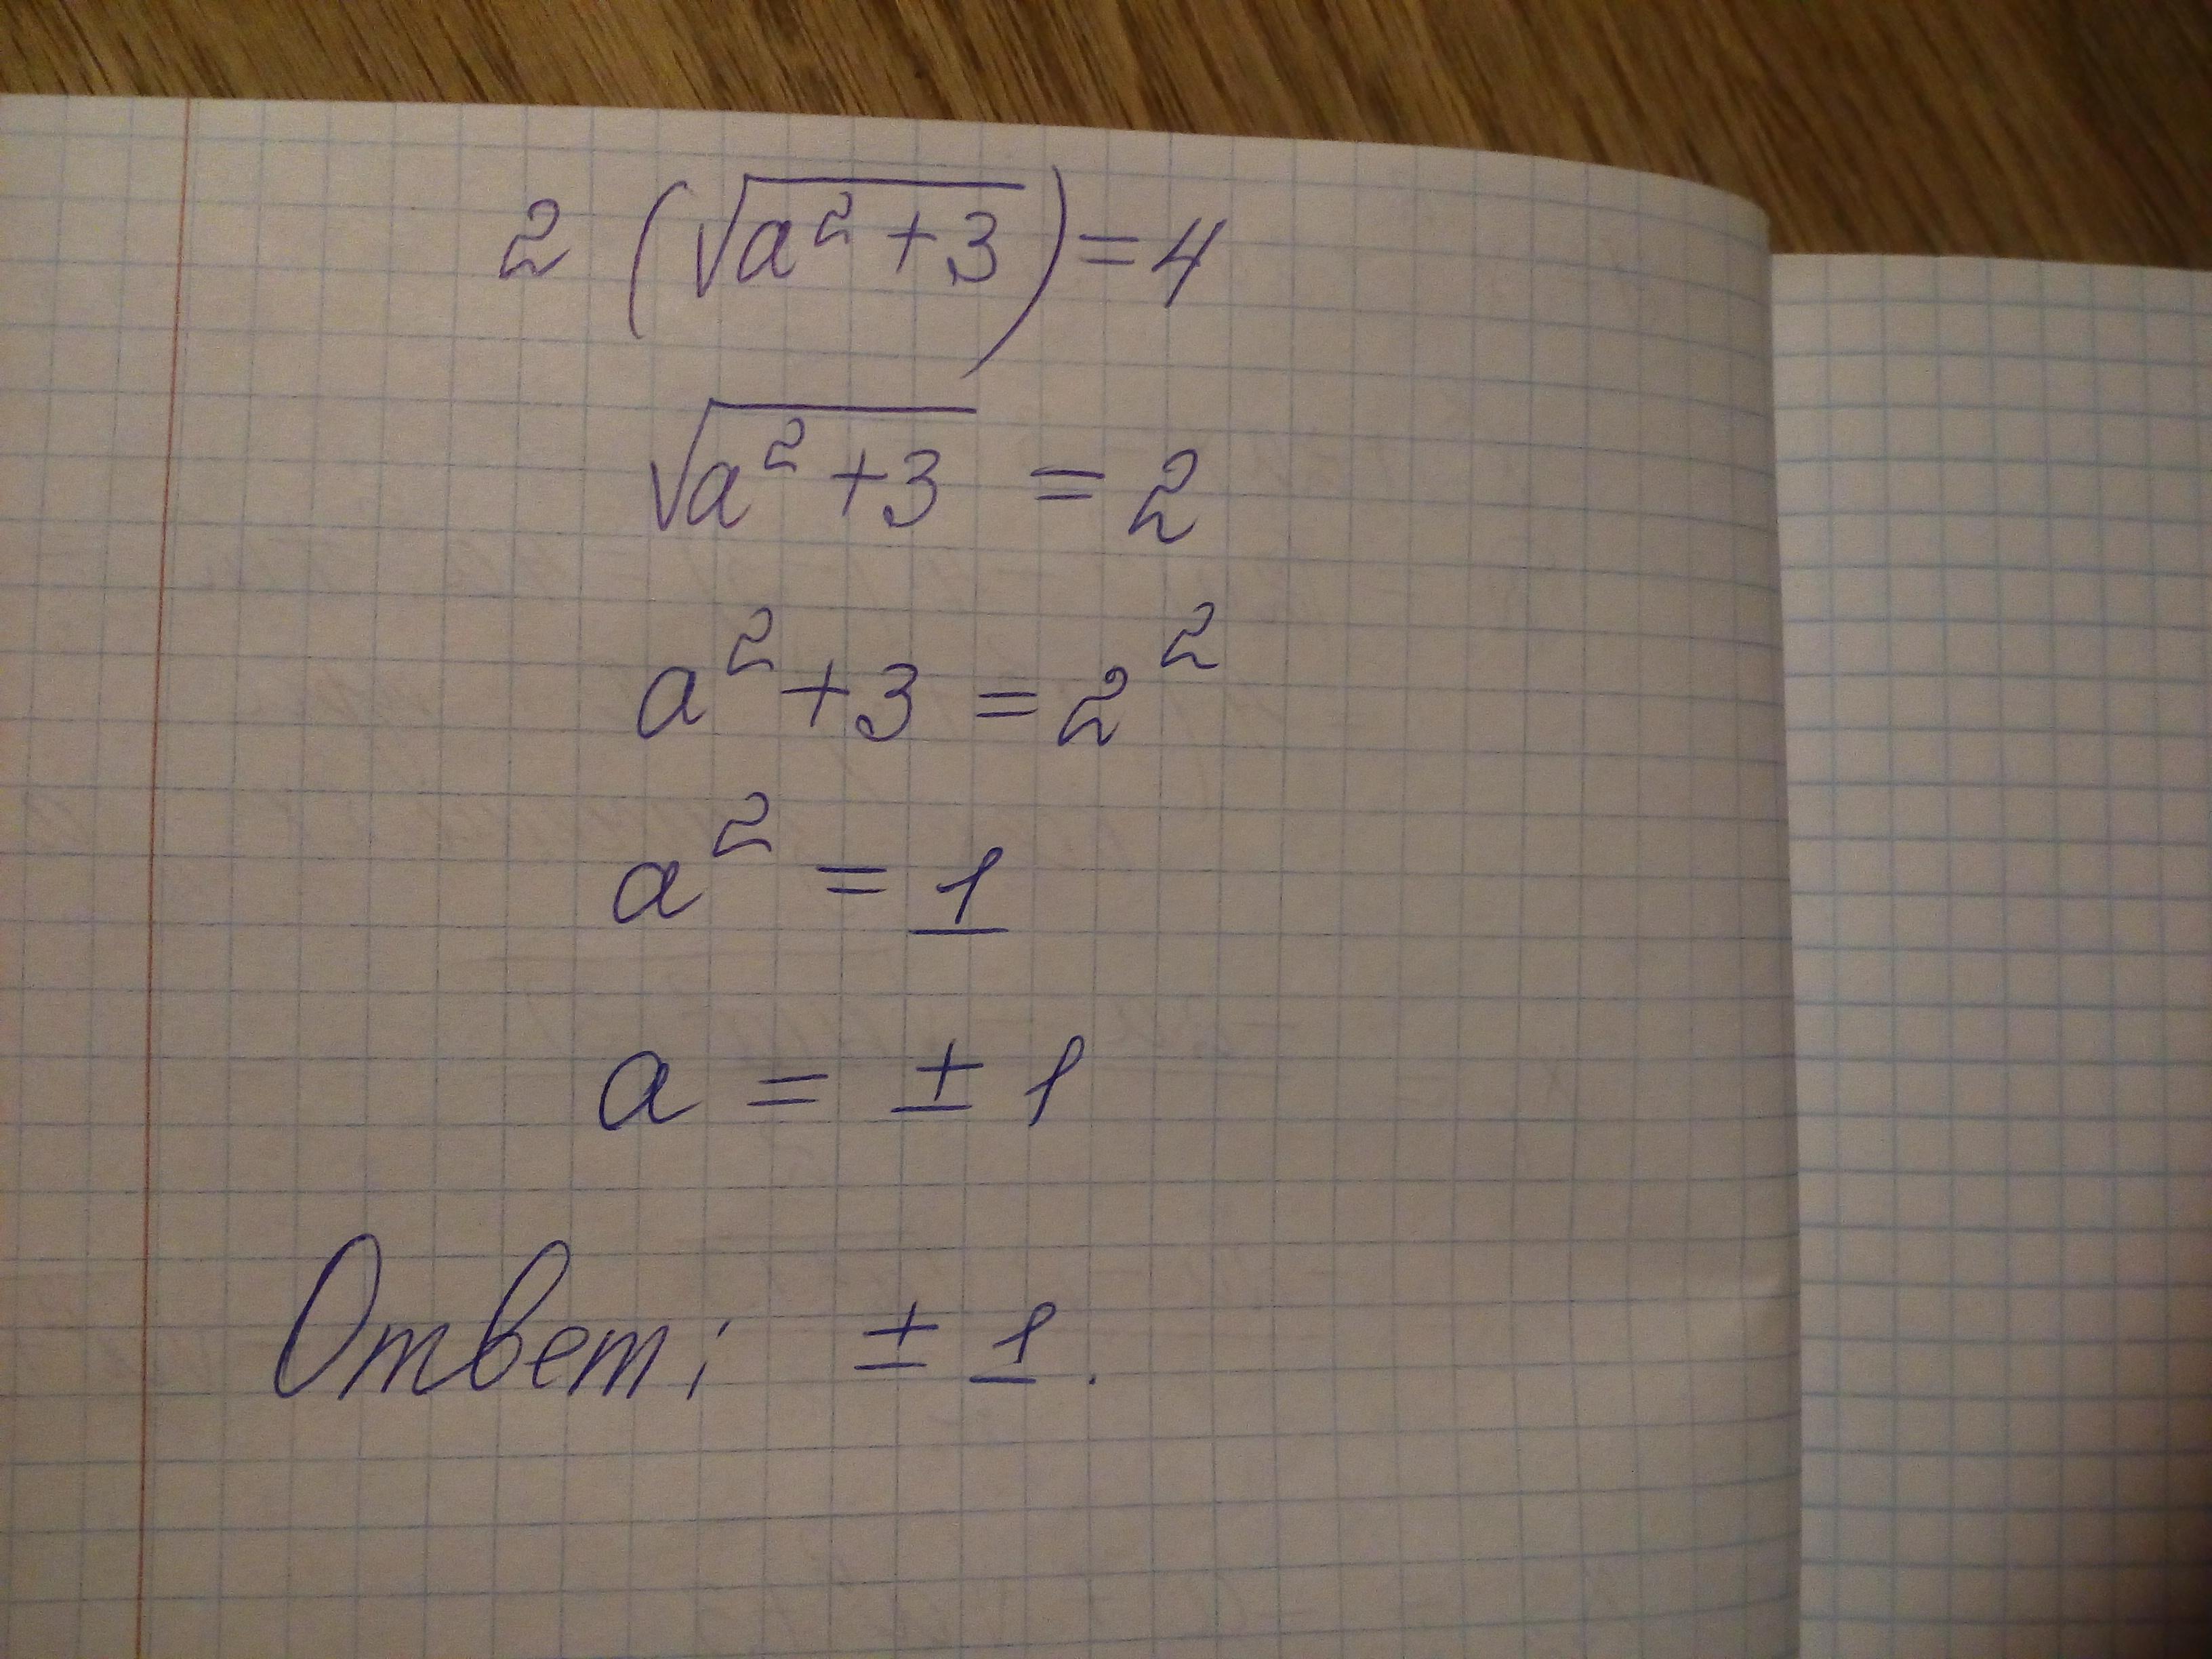 2 (√(a² + 3)) = 4
√(a² + 3) = 2
a² + 3 = 2²
a² = 1
a = ± 1
Ответ: ± 1.